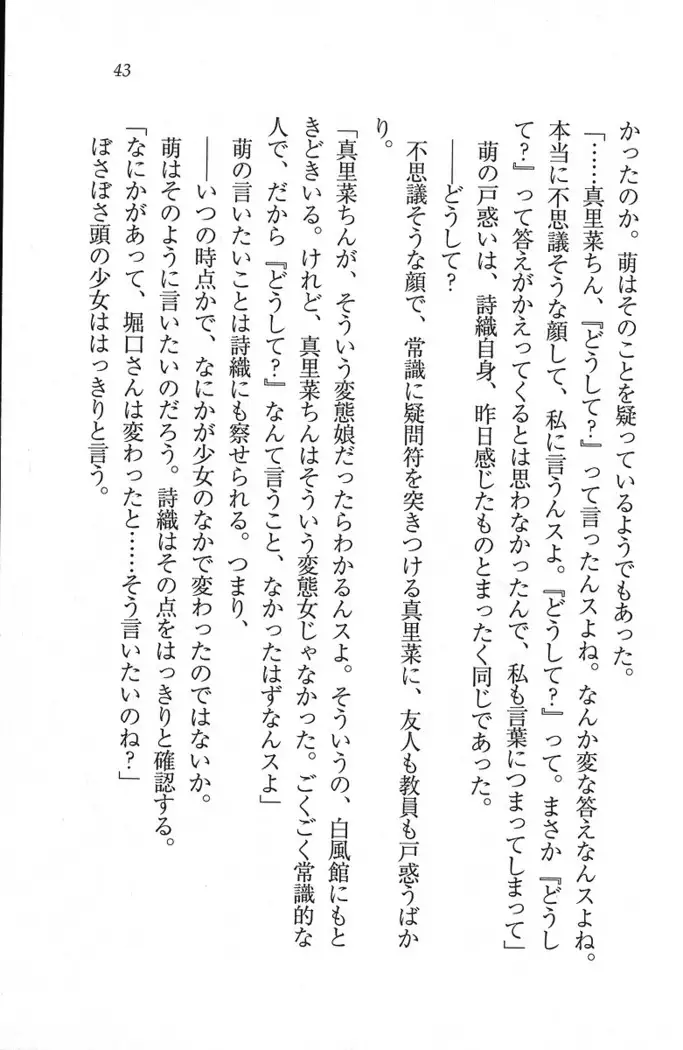 43
かったのか。萌はそのことを疑っているようでもあった。
「……真里菜ちん、『どうして？』って言ったんスよね。なんか変な答えなんスよね。
本当に不思議そうな顔して、私に言うんスよ。『どうして？』って。まさか『どうし
て？』って答えがかえってくるとは思わなかったんで、私も言葉につまってしまって」
萌の戸惑いは、詩織自身、昨日感じたものとまったく同じであった。
――どうして？
不思議そうな顔で、常識に疑問符を突きつける真里菜に、友人も教員も戸惑うばか
り。
「真里菜ちんが、そういう変態娘だったらわかるんスよ。そういうの、白風館にもと
きどきいる。けれど、真里菜ちんはそういう変態女じゃなかった。ごくごく常識的な
人で、だから『どうして？』なんて言うこと、なかったはずなんスよ」
萌の言いたいことは詩織にも察せられる。つまり、
――いつの時点かで、なにかが少女のなかで変わったのではないか。
萌はそのように言いたいのだろう。詩織はその点をはっきりと確認する。
「なにかがあって、堀口さんは変わったと……そう言いたいのね？」
ぼさぼさ頭の少女ははっきりと言う。